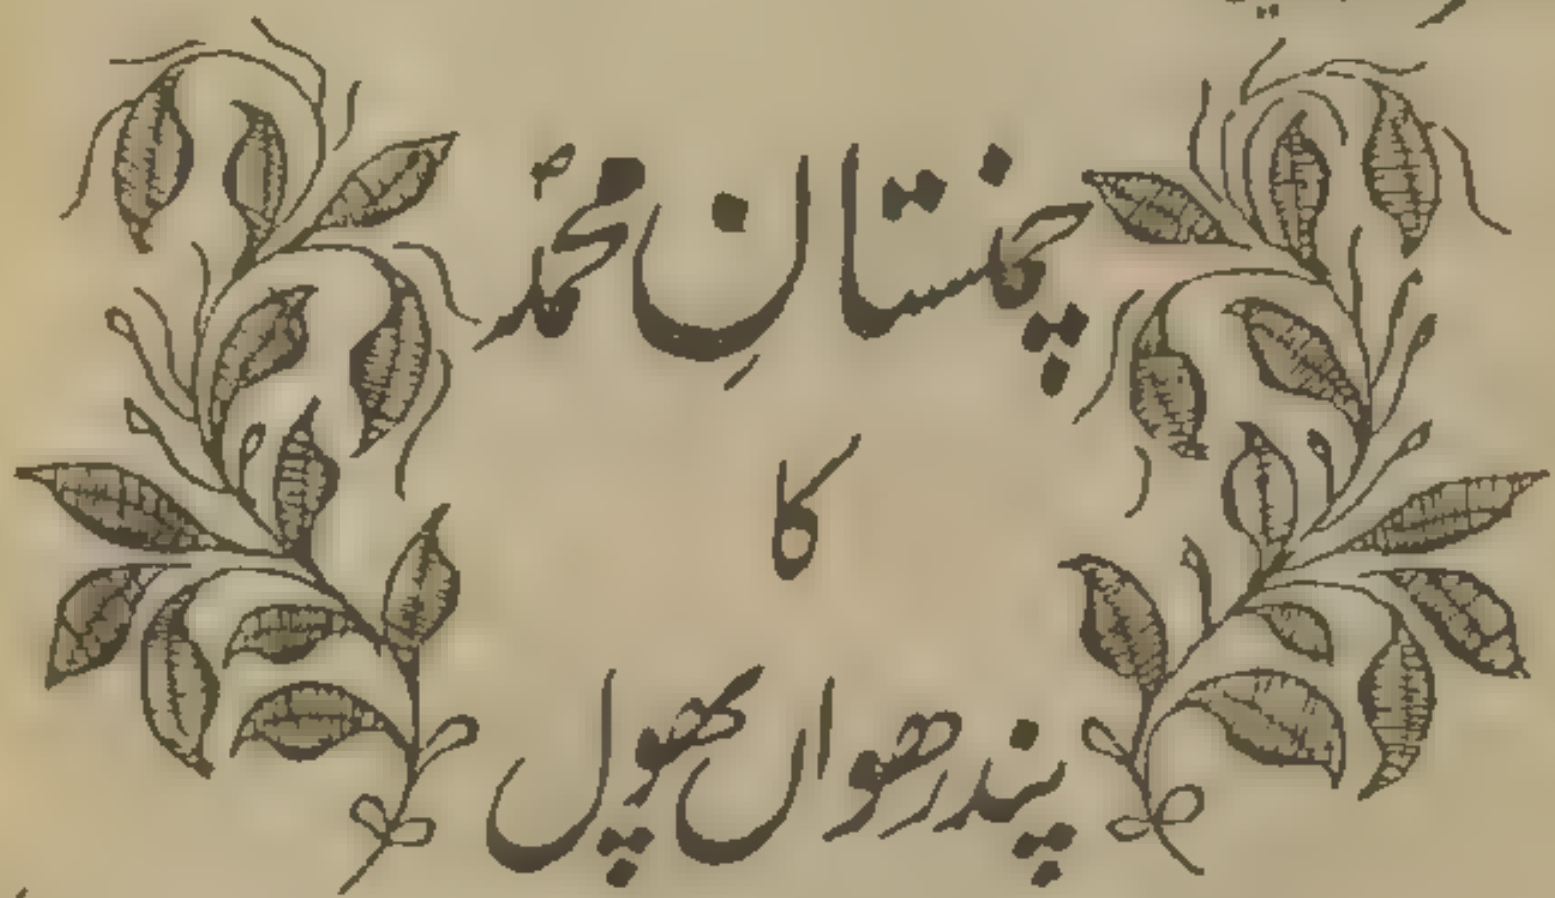 چمنستانِ محمدؐ
کا
پندرھواں پھول